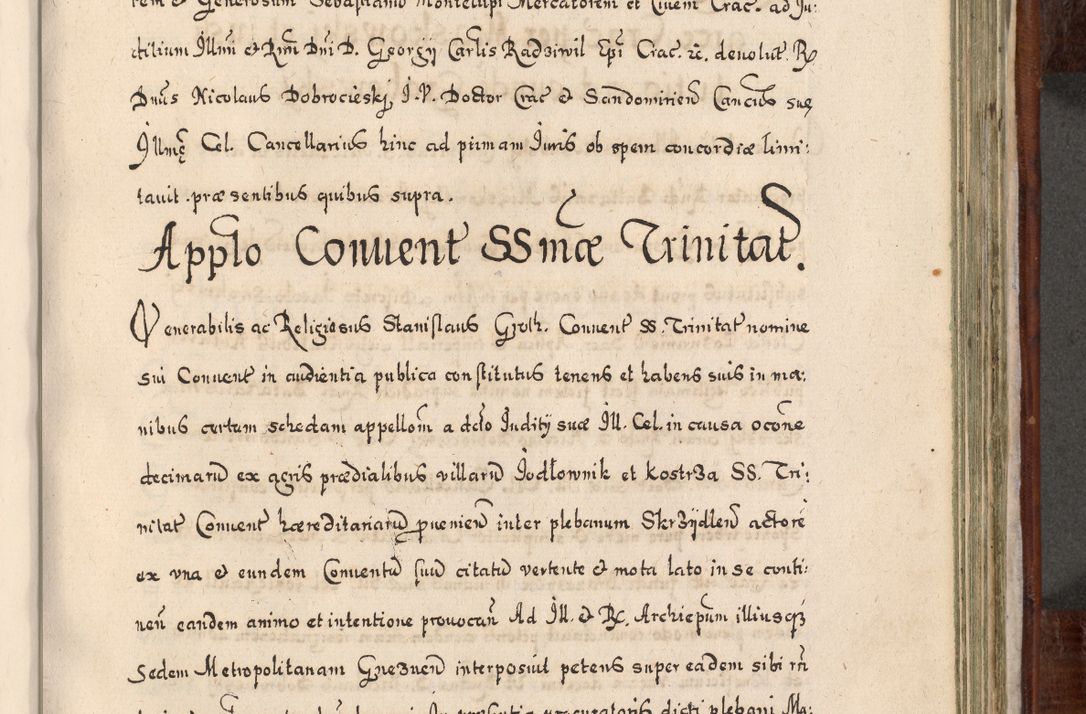 rem et Generosum Sebastianū Montelupi Mercatorem et Ciuem Crac. ad Ju:
ditium Illm̄i & Rm̄i Dn̄i D. Georgÿ Carlis Radziwil Epī Crac. &c. deuolut. R
Dnūs Nicolaus Dobrocieskj, J. V. Doctor Crac & Sandomirien̄ Cancūs suę
Jllmę Cel. Cancellarius hinc ad primam Juris ob spem concordiæ limi:
tauit .præsentibus quibus supra.
Applo Conuent SSmæ Trinitat.
Venerabilis ac Religiosus Stanislaus Groth. Conuent SS. Trinitat nomine
sui Conuent in audientia publica constitutus tenens et habens suis in ma:
nibus certam schedam appellom̄ a dcto Juditÿ suæ Jll. Cel. in causa ocōne
decimarū ex agris prædialibus villarū Jodłownik et Kostrza SS. Tri:
nitat Conuent hæreditariarū puenien̄ inter plebanum Skrzÿdlen̄ actore
ex vna & eundem Conuentū suū citatū vertente & mota lato in se conti:
nen̄ eandem animo et intentione prouocan̄ Ad Jll. & R. Archiepūm illiusq
Sedem Metropolitanam Gnezuen̄ interposiuit petens super eadem sibi rn̄
in præsentia procuratoris dicti plebani Ma: